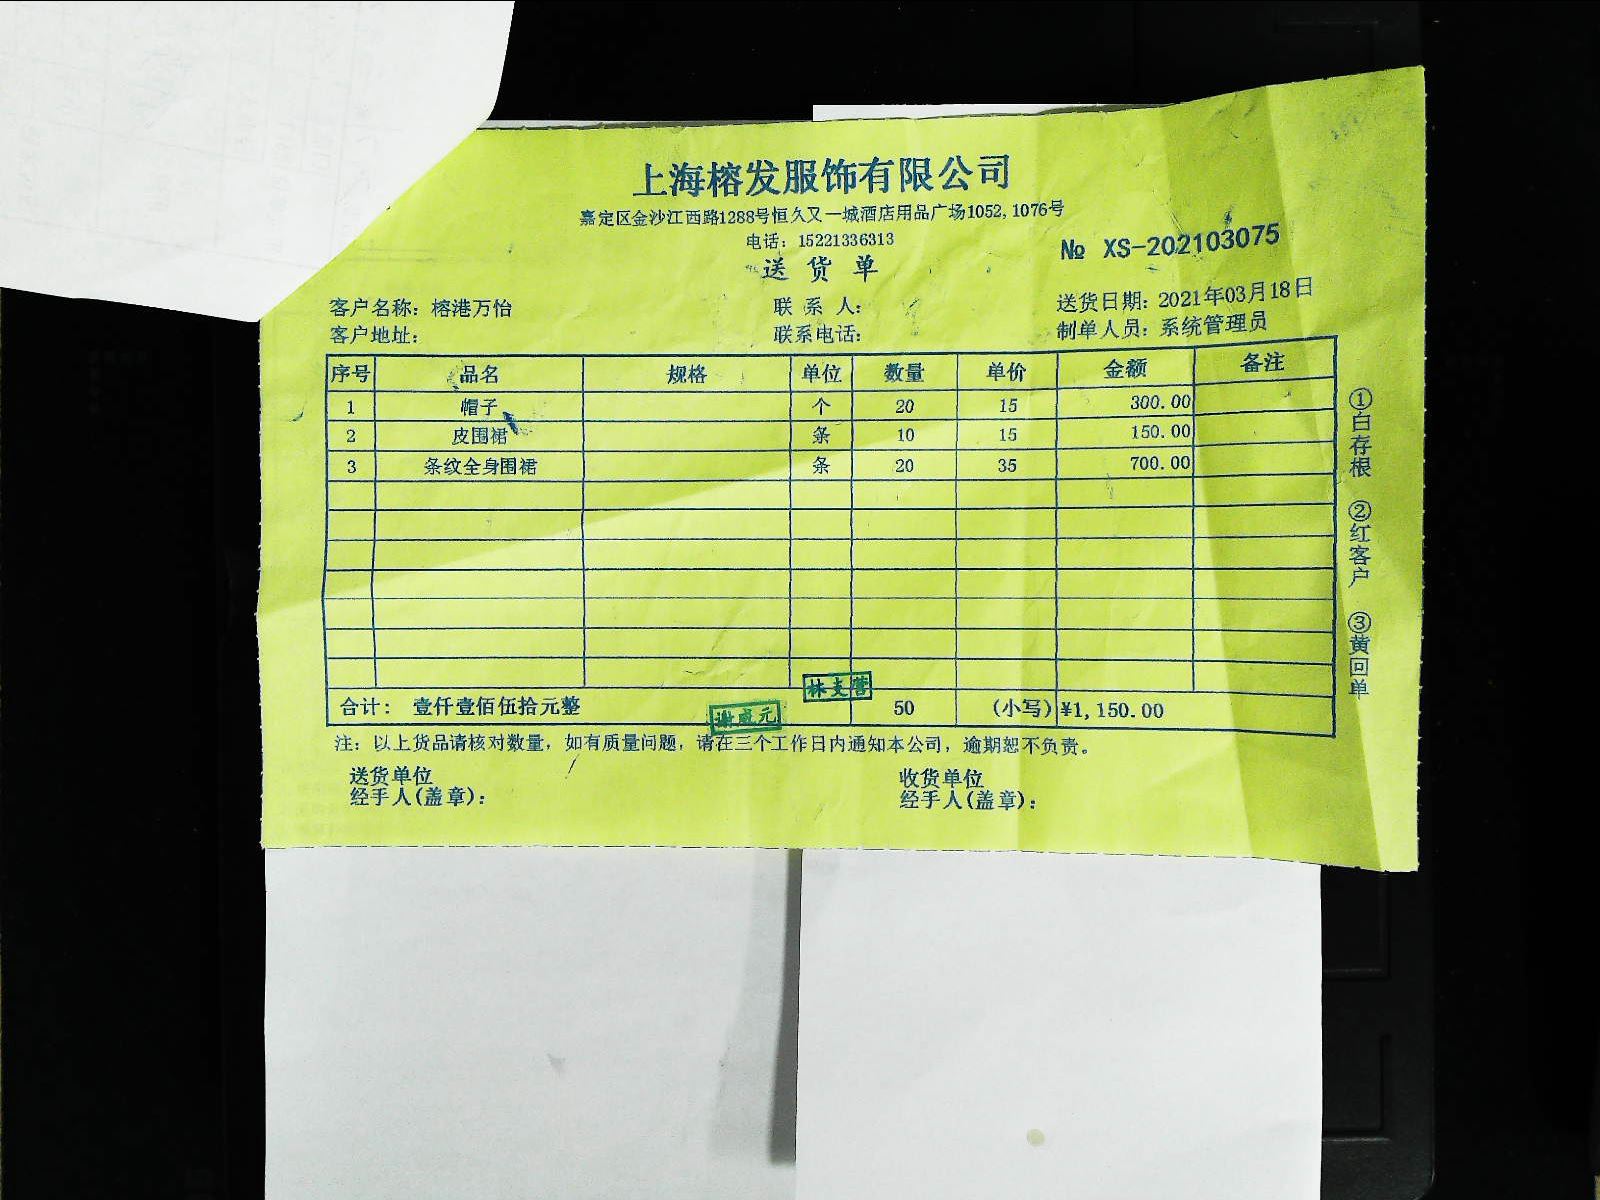 上海榕发服饰有限公司
嘉定区金沙江西路1288号恒久又一城酒店用品广场1052,1076号
电话：15221336313
№ XS-202103075
送货单
客户名称：榕港万怡 联系人： 送货日期：2021年03月18日
客户地址： 联系电话： 制单人员：系统管理员
序号 品名 规格 单位 数量 单价 金额 备注
1 帽子 个 20 15 300.00
2 皮围裙 条 10 15 150.00
3 条纹全身围裙 条 20 35 700.00
合计：壹仟壹佰伍拾元整 50 (小写) ¥1,150.00
注：以上货品请核对数量，如有质量问题，请在三个工作日内通知本公司，逾期恕不负责。
送货单位 收货单位
经手人(盖章)： 经手人(盖章)：
①白存根 ②红客户 ③黄回单